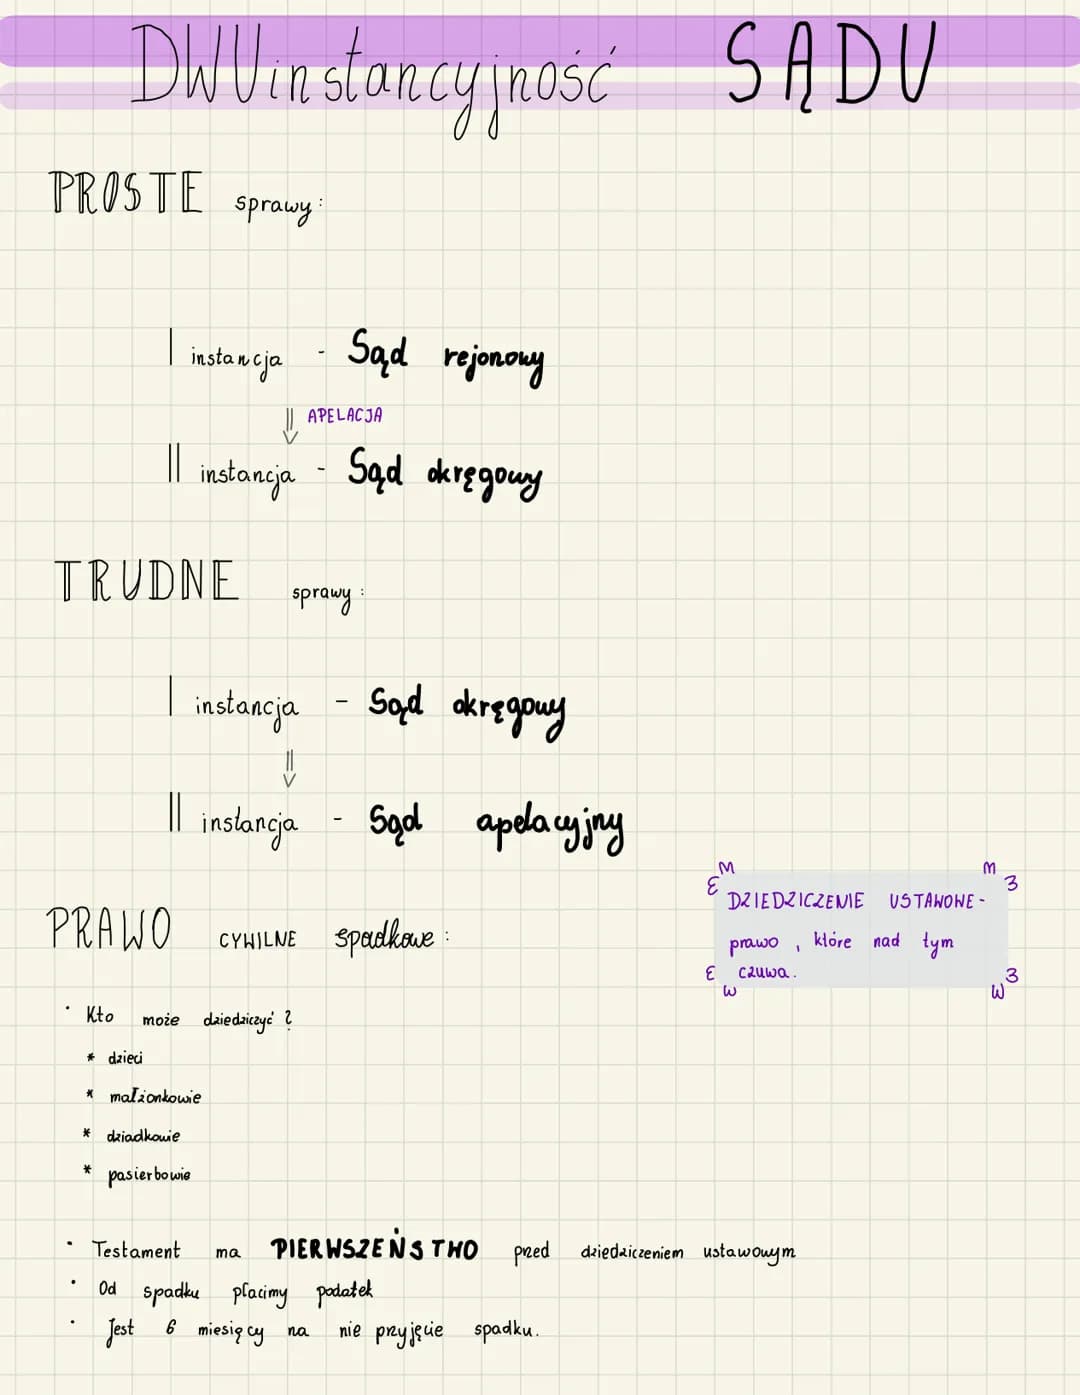 DWUinstancyjność SĄDU
PROSTE sprawy:
I instancja - Sąd rejonowy
APELACJA
II instancja - Sąd okręgowy
TRUDNE sprawy:
I instancja - Sąd okręgowy
II instancja - Sąd apelacyjny
PRAWO CYWILNE spadkowe:
DZIEDZICZENIE USTAWOWE-
prawo, które nad tym
czuwa.
· Kto może dziedziczyć?
* dzieci
* małżonkowie
* dziadkowie
* pasierbowie
· Testament ma PIERWSZEŃSTWO przed dziedziczeniem ustawowym
· Od spadku płacimy podatek
· Jest 6 miesięcy na nie przyjęcie spadku.